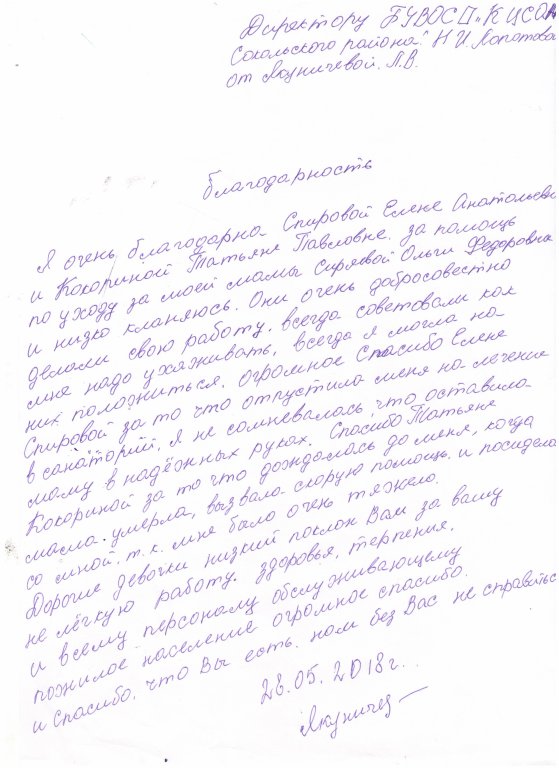 Директору БУВОСО „КЦСОН
Сокольского района" Н.И. Лопотова
от Лязничевой Л.В.
благодарность
Я очень благодарна Спировой Елене Анатольевн
и Кокориной Татьяне Павловне. за помощь
по уходу за моей мамы Сиряевой Ольги Федоровна
и низко кланяюсь. Они очень добросовестно
делали свою работу, всегда советовали как
мне надо ухаживать, всегда я могла на
них положиться. огромное Спасибо Елене
Спировой за то что отпустила меня на лечение
в санаторий, я не сомневалась, что оставила
маму в надёжных руках. Спасибо Татьяне
Кокориной за то что дождалась до меня, когда
мама умерла, вызвала скорую помощь и посидела
со мной, т.к. мне было очень тяжело.
Дорогие девочки низкий поклон Вам за вашу
не лёгкую работу. здоровья, терпения,
и всему персоналу обслуживающему
пожилое население огромное спасибо.
и Спасибо, что Вы есть. нам без Вас не справиться
28.05.2018г.